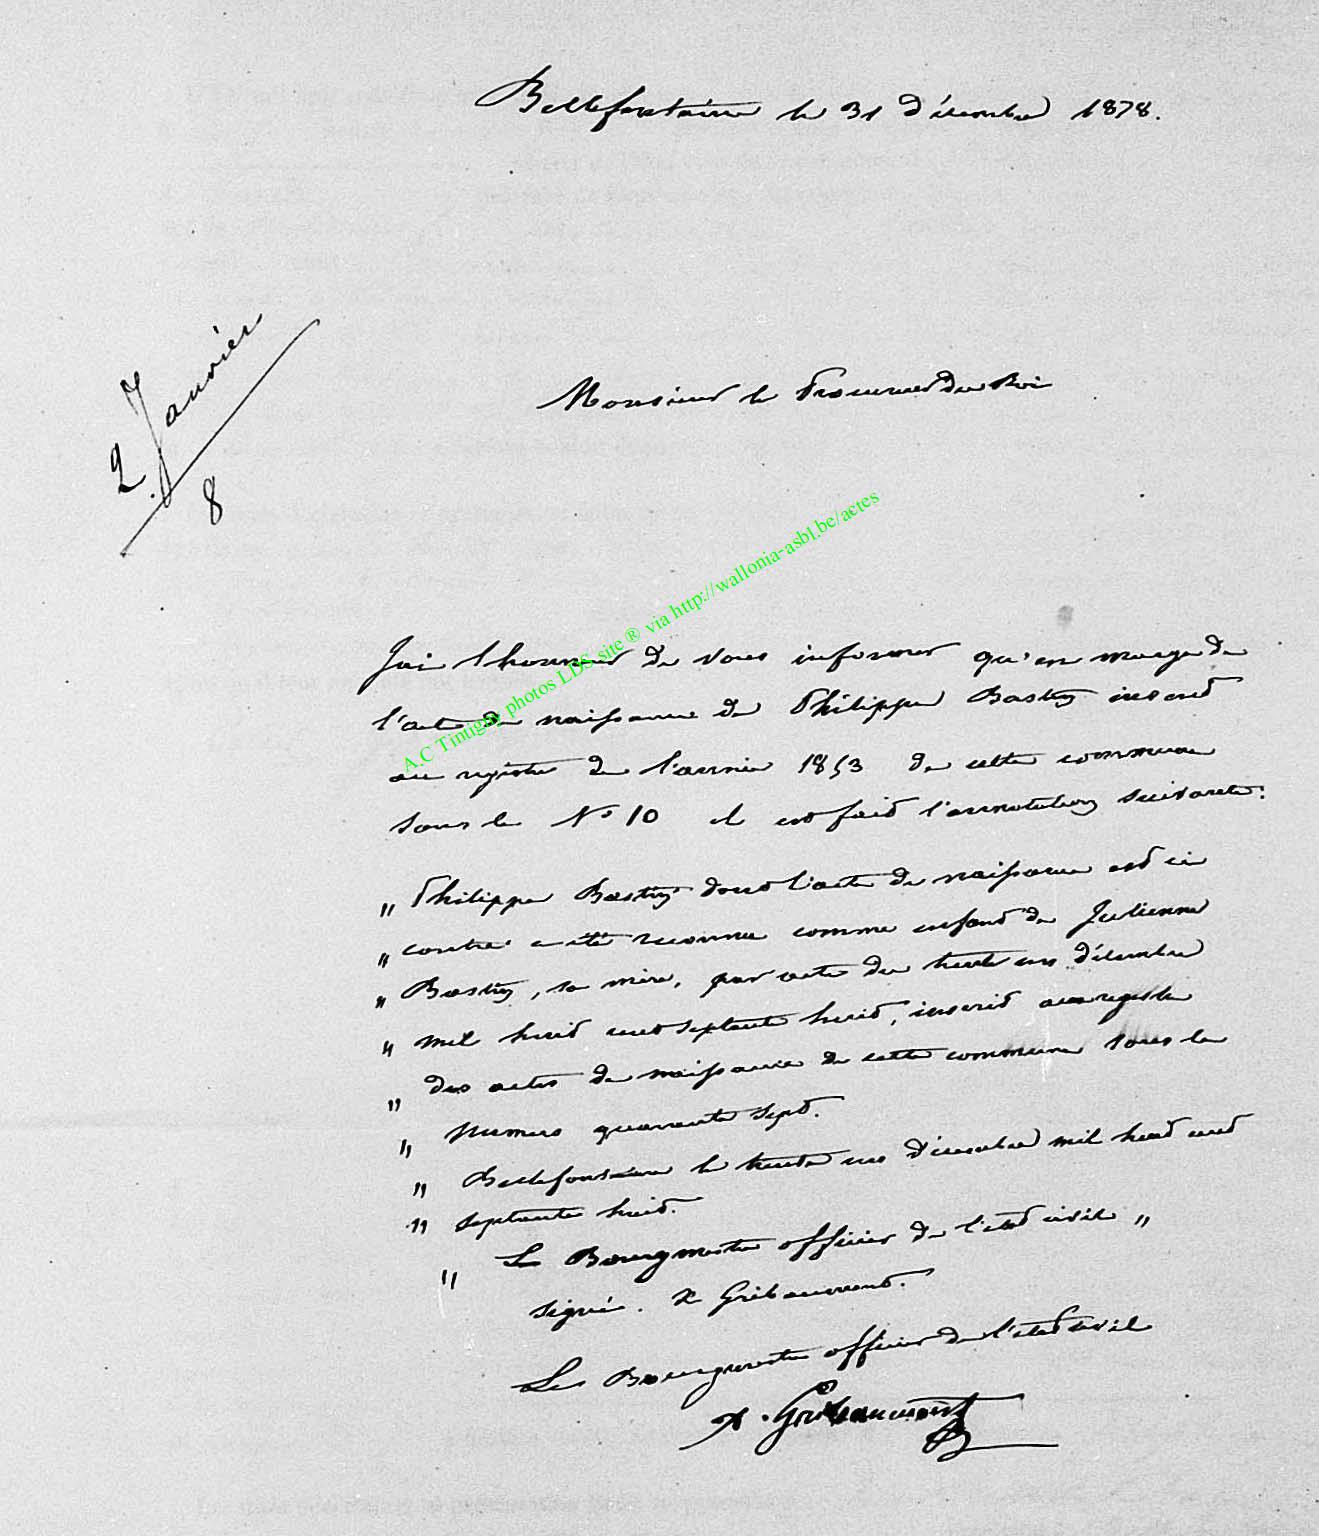 Bellefontaine le 31 décembre 1878.
2 Janvier
8
Monsieur le Procureur du Roi
A.C Tintigny photos LDS site ® via http://wallonia-asbl.be/actes
J'ai l'honneur de vous informer qu'en marge de
l'acte de naissance de Philippe Bastin inscrit
au registre de l'année 1853 de cette commune
sous le No 10 il est fait l'annotation suivante:
" Philippe Bastin dont l'acte de naissance est ci
" contre a été reconnu comme enfant de Julienne
" Bastin, sa mère, par acte du trente un décembre
" mil huit cent septante huit, inscrit au registre
" des actes de naissance de cette commune sous le
" Numero quarante sept.
" Bellefontaine le trente un décembre mil huit cent
" septante huit.
" Le Bourgmestre officier de l'état civil "
signé. Gribaumont.
Le Bourgmestre officier de l'état civil
Gribaumont